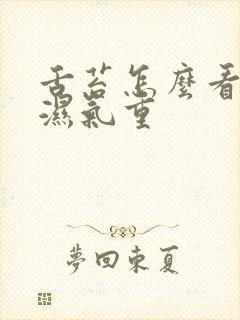 舌苔怎麼看
濕氣重
夢回東夏